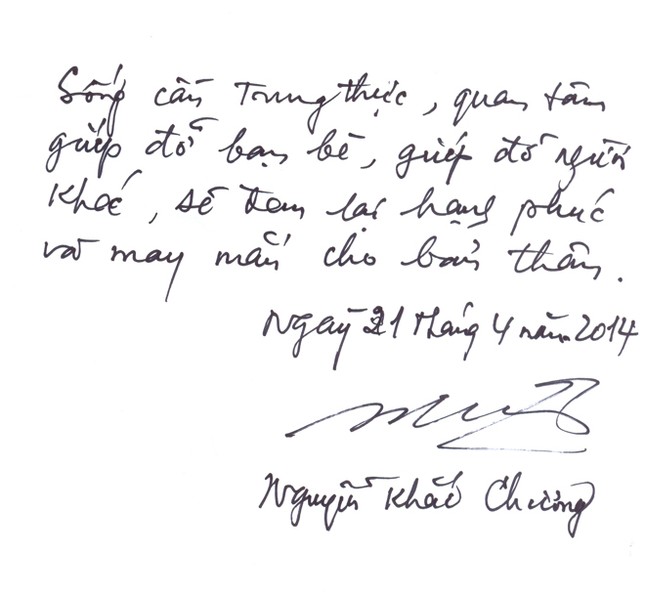 Sống cần Trung thực, quan tâm
giúp đỡ bạn bè, giúp đỡ người
khác, sẽ đem lại hạnh phúc
và may mắn cho bản thân.
Ngày 21 tháng 4 năm 2014
Nguyễn Khắc Chương